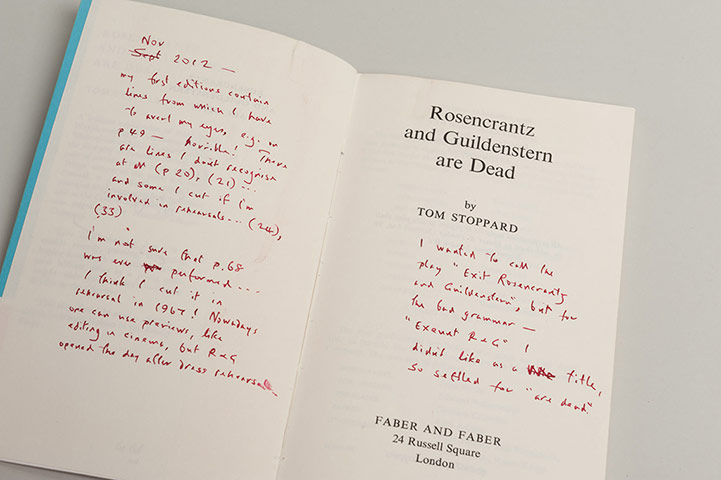 Nov
Sept 2012 —
my first editions contain
lines from which I have
to avert my eyes, e.g. on
p 49 — horrible! There
are lines I don't recognise
at all (p 20), (21) ...
and some I cut if I'm
involved in rehearsals ... (24),
(33)
I'm not sure that p. 68
was ever performed ....
I think I cut it in
rehearsal in 1967! Nowadays
one can use previews, like
editing in cinema, but R & G
opened the day after dress rehearsal.
Rosencrantz
and Guildenstern
are Dead
by
TOM STOPPARD
I wanted to call the
play "Exit Rosencrantz
and Guildenstern", but for
the bad grammar —
"Exeunt R & G" I
didn't like as a title,
so settled for "are dead."
FABER AND FABER
24 Russell Square
London